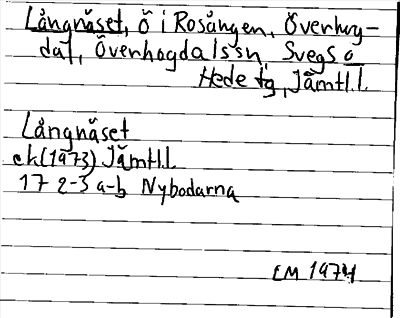 Långnäset, ö i Rosången, Överhog-
dal, Överhogdals sn, Svegs o
Hede tg, Jämtl. l.
Långnäset
ek (1973) Jämtl. l.
17 2-3 a-b Nybodarna
EM 1974